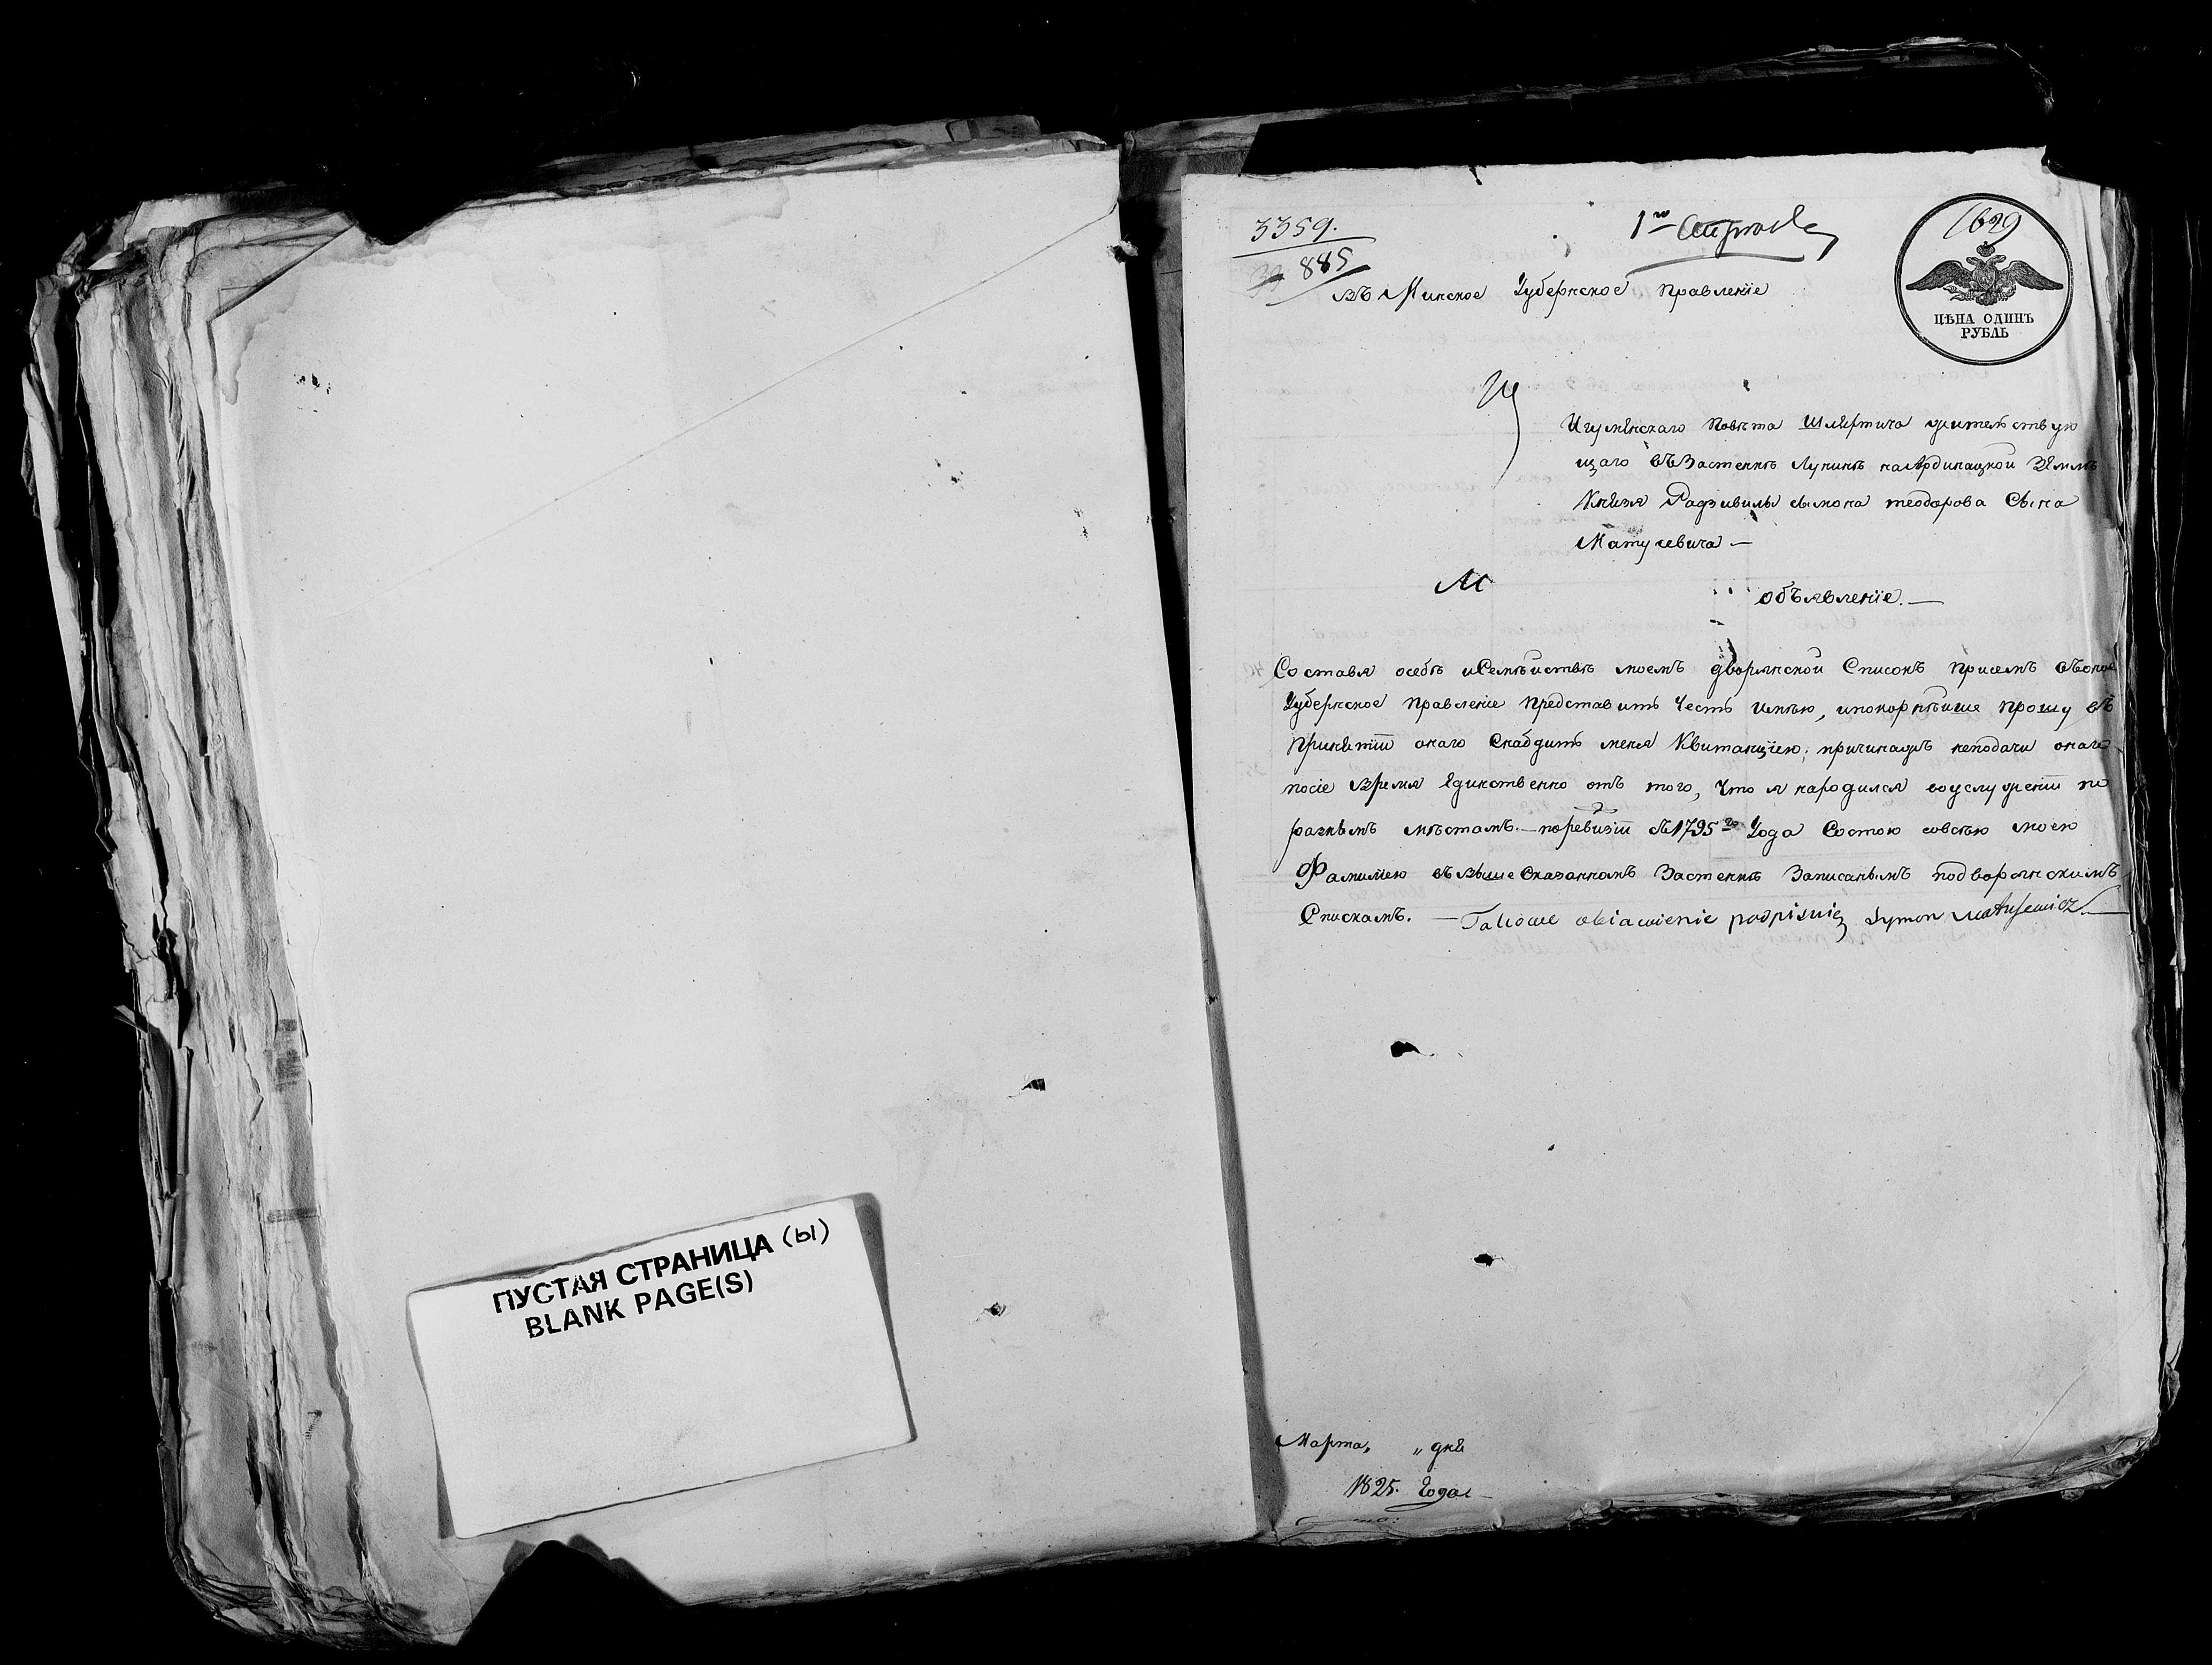 ПУСТАЯ СТРАНИЦА (ы)
BLANK PAGE(S)
3359.
885
1629
ЦѢНА ОДИНЪ
РУБЛЬ
въ Минское Губернское Правленіе
И
Игуменскаго Повѣта Шляхтича жительствую
щаго въ Застенкѣ Лукинѣ на Ординацкой Землѣ
Князя Радзивила Сымона теодорова Сына
Матусевича —
М
объявленіе. —
Составя о себѣ и Семѣйствѣ моемъ дворянской Списокъ при семъ въ оное
Губернское Правленіе Представить Честь Имѣю, и покорнѣише Прошу въ
Принятіи онаго Снабдить меня Квитанціею, неподачи онаго
по сіе Время Единственно отъ того, Что я народился во услуженіи по
разнымъ мѣстамъ. — по ревизіи съ 1795го Года Состою со всею моею
Фамиліею въ выше Сказанномъ Застенкѣ Записанымъ по дворянскимъ
Спискамъ. — Takowe obiawienie podpisuię Symon Matusewicz —
Марта „ „ дня
1825. Года —